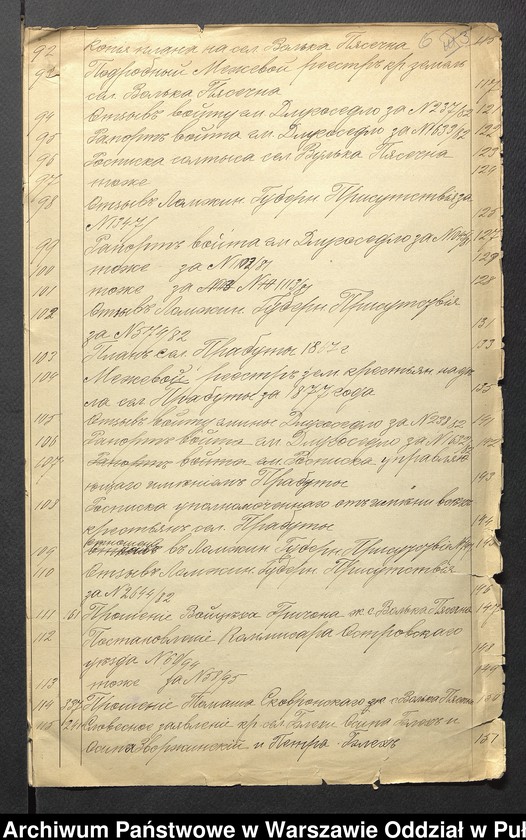 92 Копія плана на сел. Волька Пясечна
93 Подробный Межевой реестръ кр. земель
сел. Волька Пясечна 117
94 Отзывъ войту гм. Длугоседло за N 237/82 121
95 Рапортъ войта гм. Длугоседло за N 1633/82 122
96 Росписка солтыса сел. Вулька Пясечна 123
97 тоже 124
98 Отзывъ Ломжин. Губерн. Присутствія за
N 1347/ 126
99 Рапортъ войта гм. Длугоседло за N 127
100 тоже за N 1102/81 129
101 тоже за N 1113/81 128
102 Отзывъ Ломжин. Губерн. Присутствія
за N 5174/82 131
103 Планъ сел. Прабуты 18 г 133
104 Межевой реестръ зем. крестьян. надѣ
ла сел. Прабуты за 1877 года 135
105 Отзывъ войту гмины Длугоседло за N 238/82 141
106 Рапортъ войта гм. Длугоседло за N 142
107 Рапортъ войта гм. Росписка управляю
ющаго имѣніемъ Прабуты 143
108 Росписка уполномоченнаго отъ имени всѣхъ
крестьянъ сел. Прабуты 144
109 Отношеніе въ Ломжин. Губерн. Присутствіе
110 Отзывъ Ломжин. Губерн. Присутствія
за N 2644/82 146
111 61 Прошеніе Войцеха ж. с. Волька Пясечна 147
112 Постановленіе Коммисара Островскаго
уѣзда N 60/94 148
113 тоже за N 58/95 149
114 337 Прошеніе Томаша Сковронскаго ж. с. Волька Пясечна 150
115 Словесное заявленіе кр. сел. Блехи Осипа Блехъ и
Осипа Зворжинскій и Петра Блехъ 151
Archiwum Państwowe w Warszawie Oddział w Puł